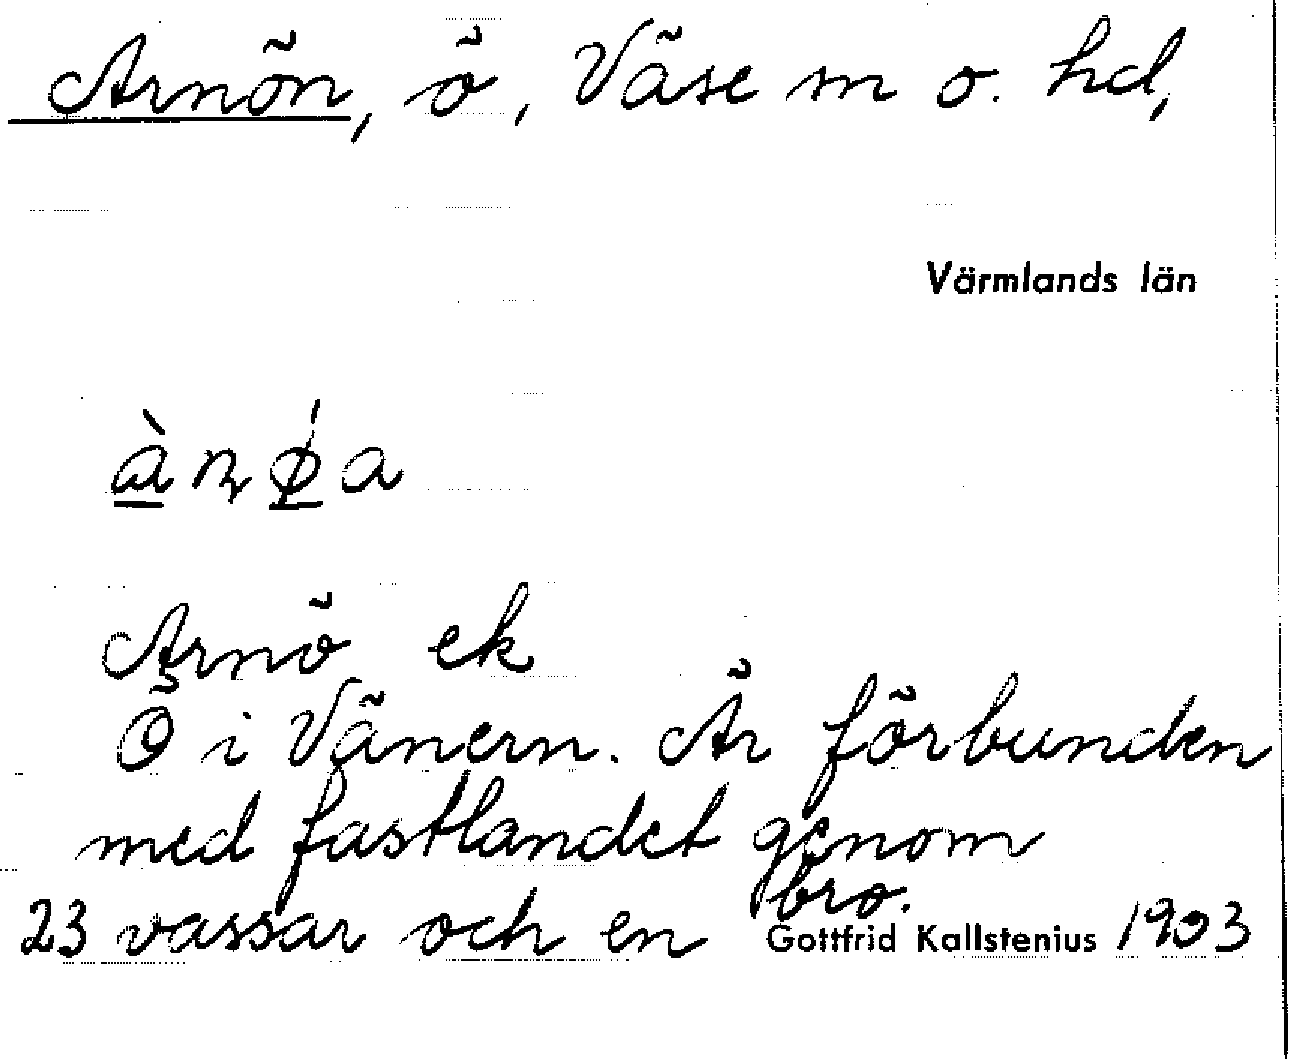 Arnön, ö, Väse sn o. hd,
Värmlands län
àɳǿa
Arnö ek
Ö i Vänern. Är förbunden
med fastlandet genom
vassar och en bro.
23 Gottfrid Kallstenius 1903